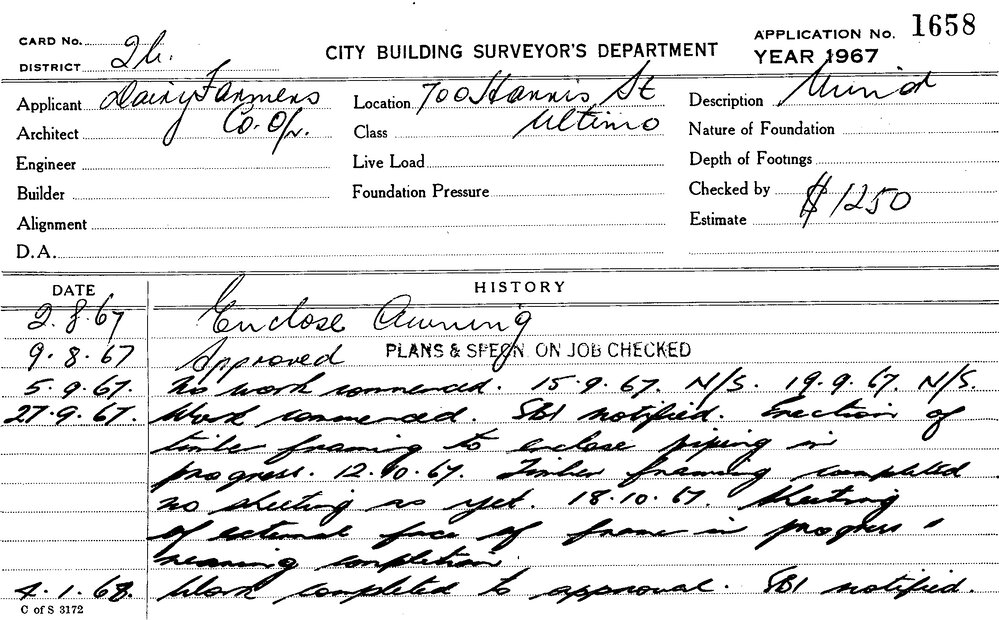 CARD No.
DISTRICT 2b.
CITY BUILDING SURVEYOR'S DEPARTMENT
APPLICATION No. 1658
YEAR 1967
Applicant Dairy Farmers
Co. Op.
Location 700 Harris St
Ultimo
Description
Architect
Class
Nature of Foundation
Engineer
Live Load
Depth of Footings
Builder
Foundation Pressure
Checked by
Alignment
Estimate $1250
D.A.
DATE HISTORY
2.8.67 Enclose Awning
9.8.67 Approved PLANS & SPECN. ON JOB CHECKED
5.9.67. No work commenced. 15.9.67. N/S. 19.9.67. N/S.
27.9.67. Work commenced. SBI notified. Erection of
timber framing to enclose piping in
progress. 12.10.67. Timber framing completed
no sheeting as yet. 18.10.67. Sheeting
of external face of frame in progress &
nearing completion
4.1.68. Work completed to approval. SBI notified.
C of S 3172